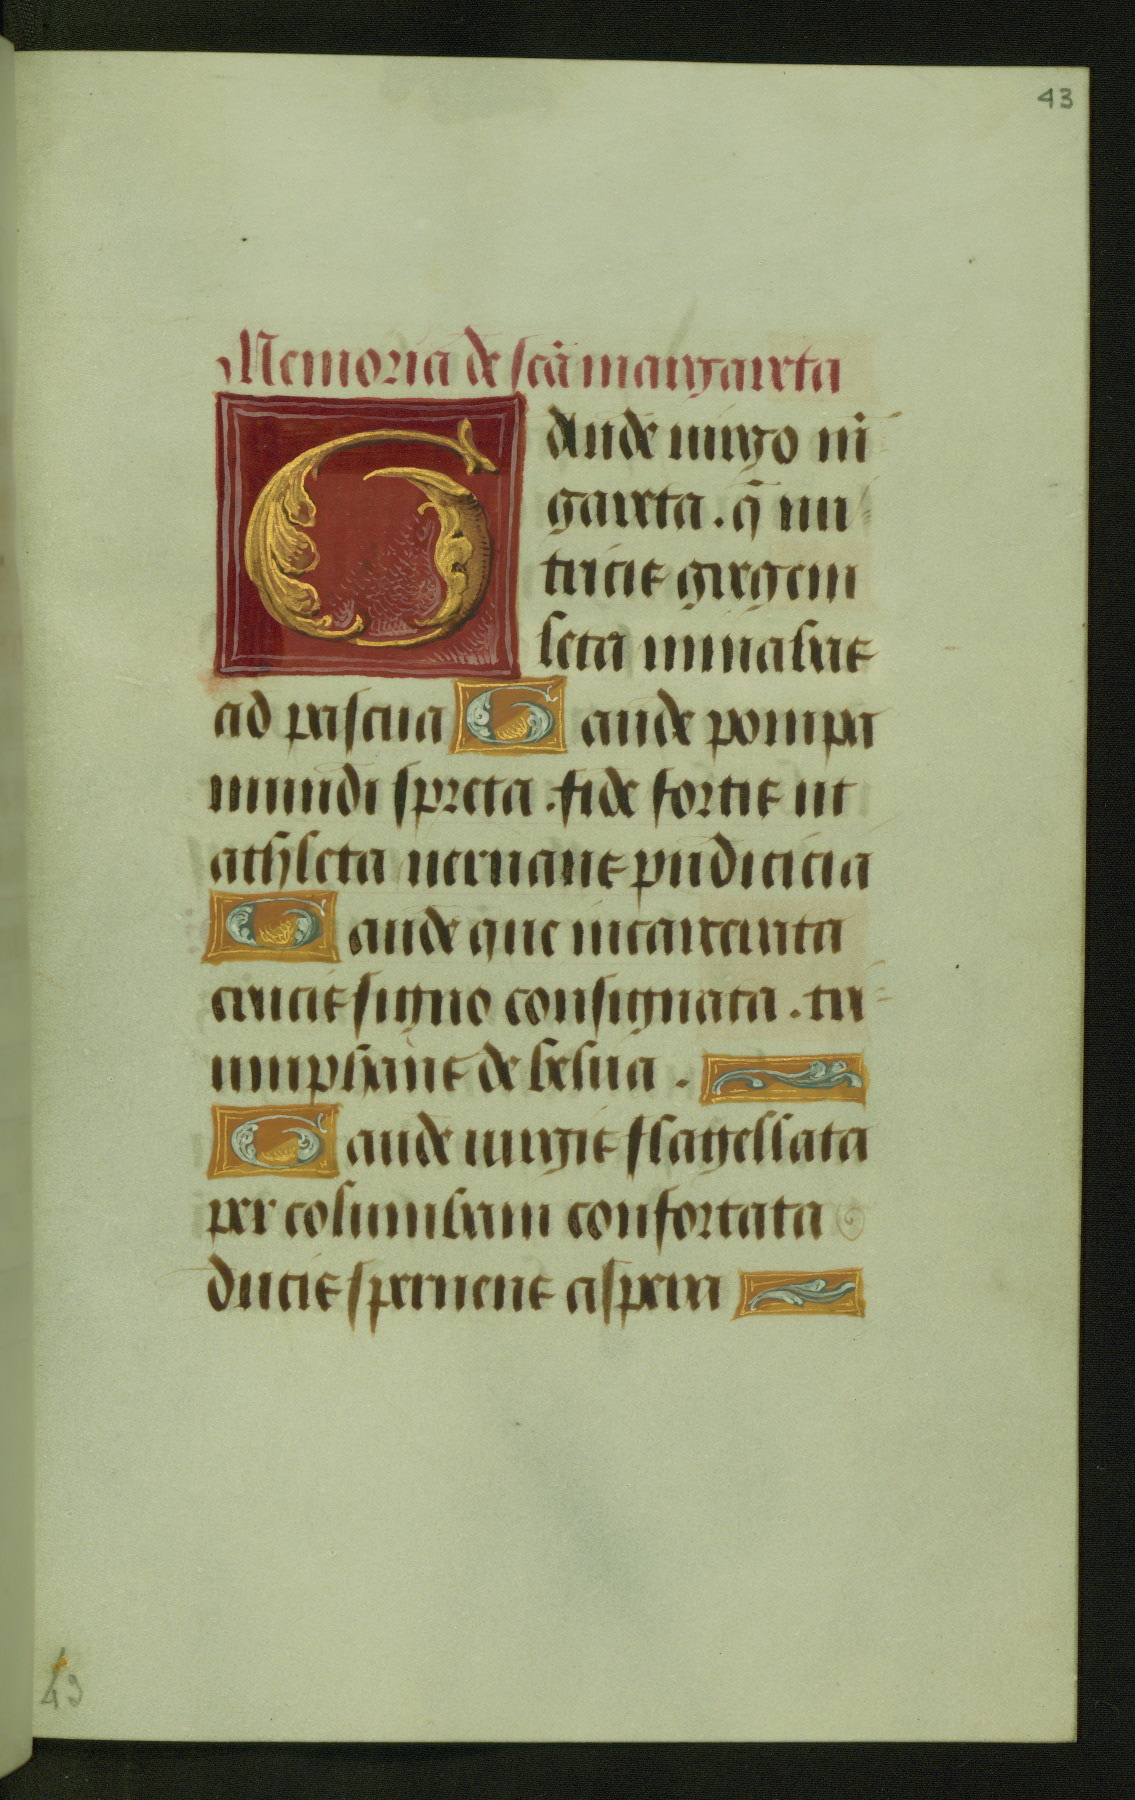 43
Memoria de scã margareta
GAude uirgo m̃
gareta. q̃ nu
tricis gregem
leta minabas
ad pascua Gaude pompa
mundi spreta. fide fortis ut
athleta uernans pudicicia
Gaude que incarcerata
crucis signo consignata. tri
umphans de belua.
Gaude uirgis flagellata
per columbam confortata
ducis spernens aspera
43